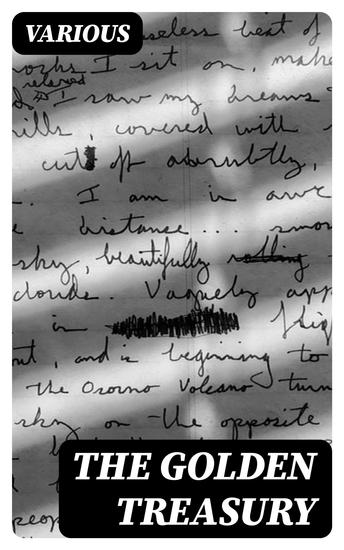 VARIOUS
seless beat of
rocks I sit on, make
relaxed
I saw my dreams
ills, covered with
cut off abruptly,
I am in awe
distance ....
sky, beautifully rolling
clouds. Vaguely app
in
and is beginning to
the Osorno Volcano turn
sky on the opposite
THE GOLDEN
TREASURY
peop